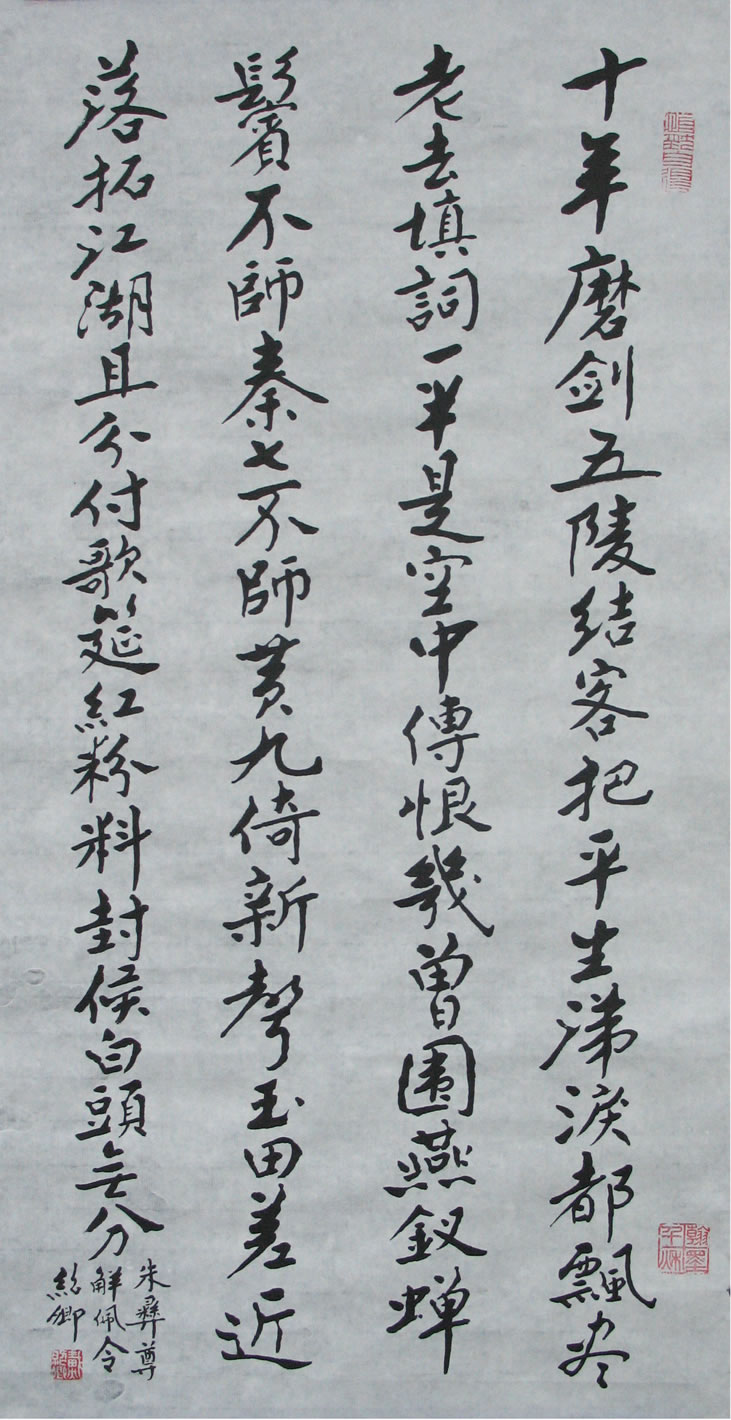 十年磨剑五陵结客把平生涕淚都飄尽
老去填詞一半是空中傳恨幾曾圍燕釵蝉
鬢不師秦七不師黄九倚新聲玉田差近
落拓江湖且分付歌筵紅粉料封候白頭無分
朱彝尊
解佩令